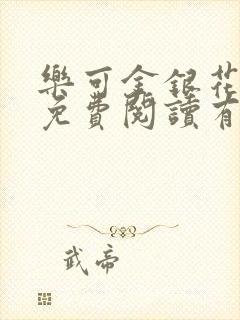 樂可金銀花
免費閱讀有
武帝